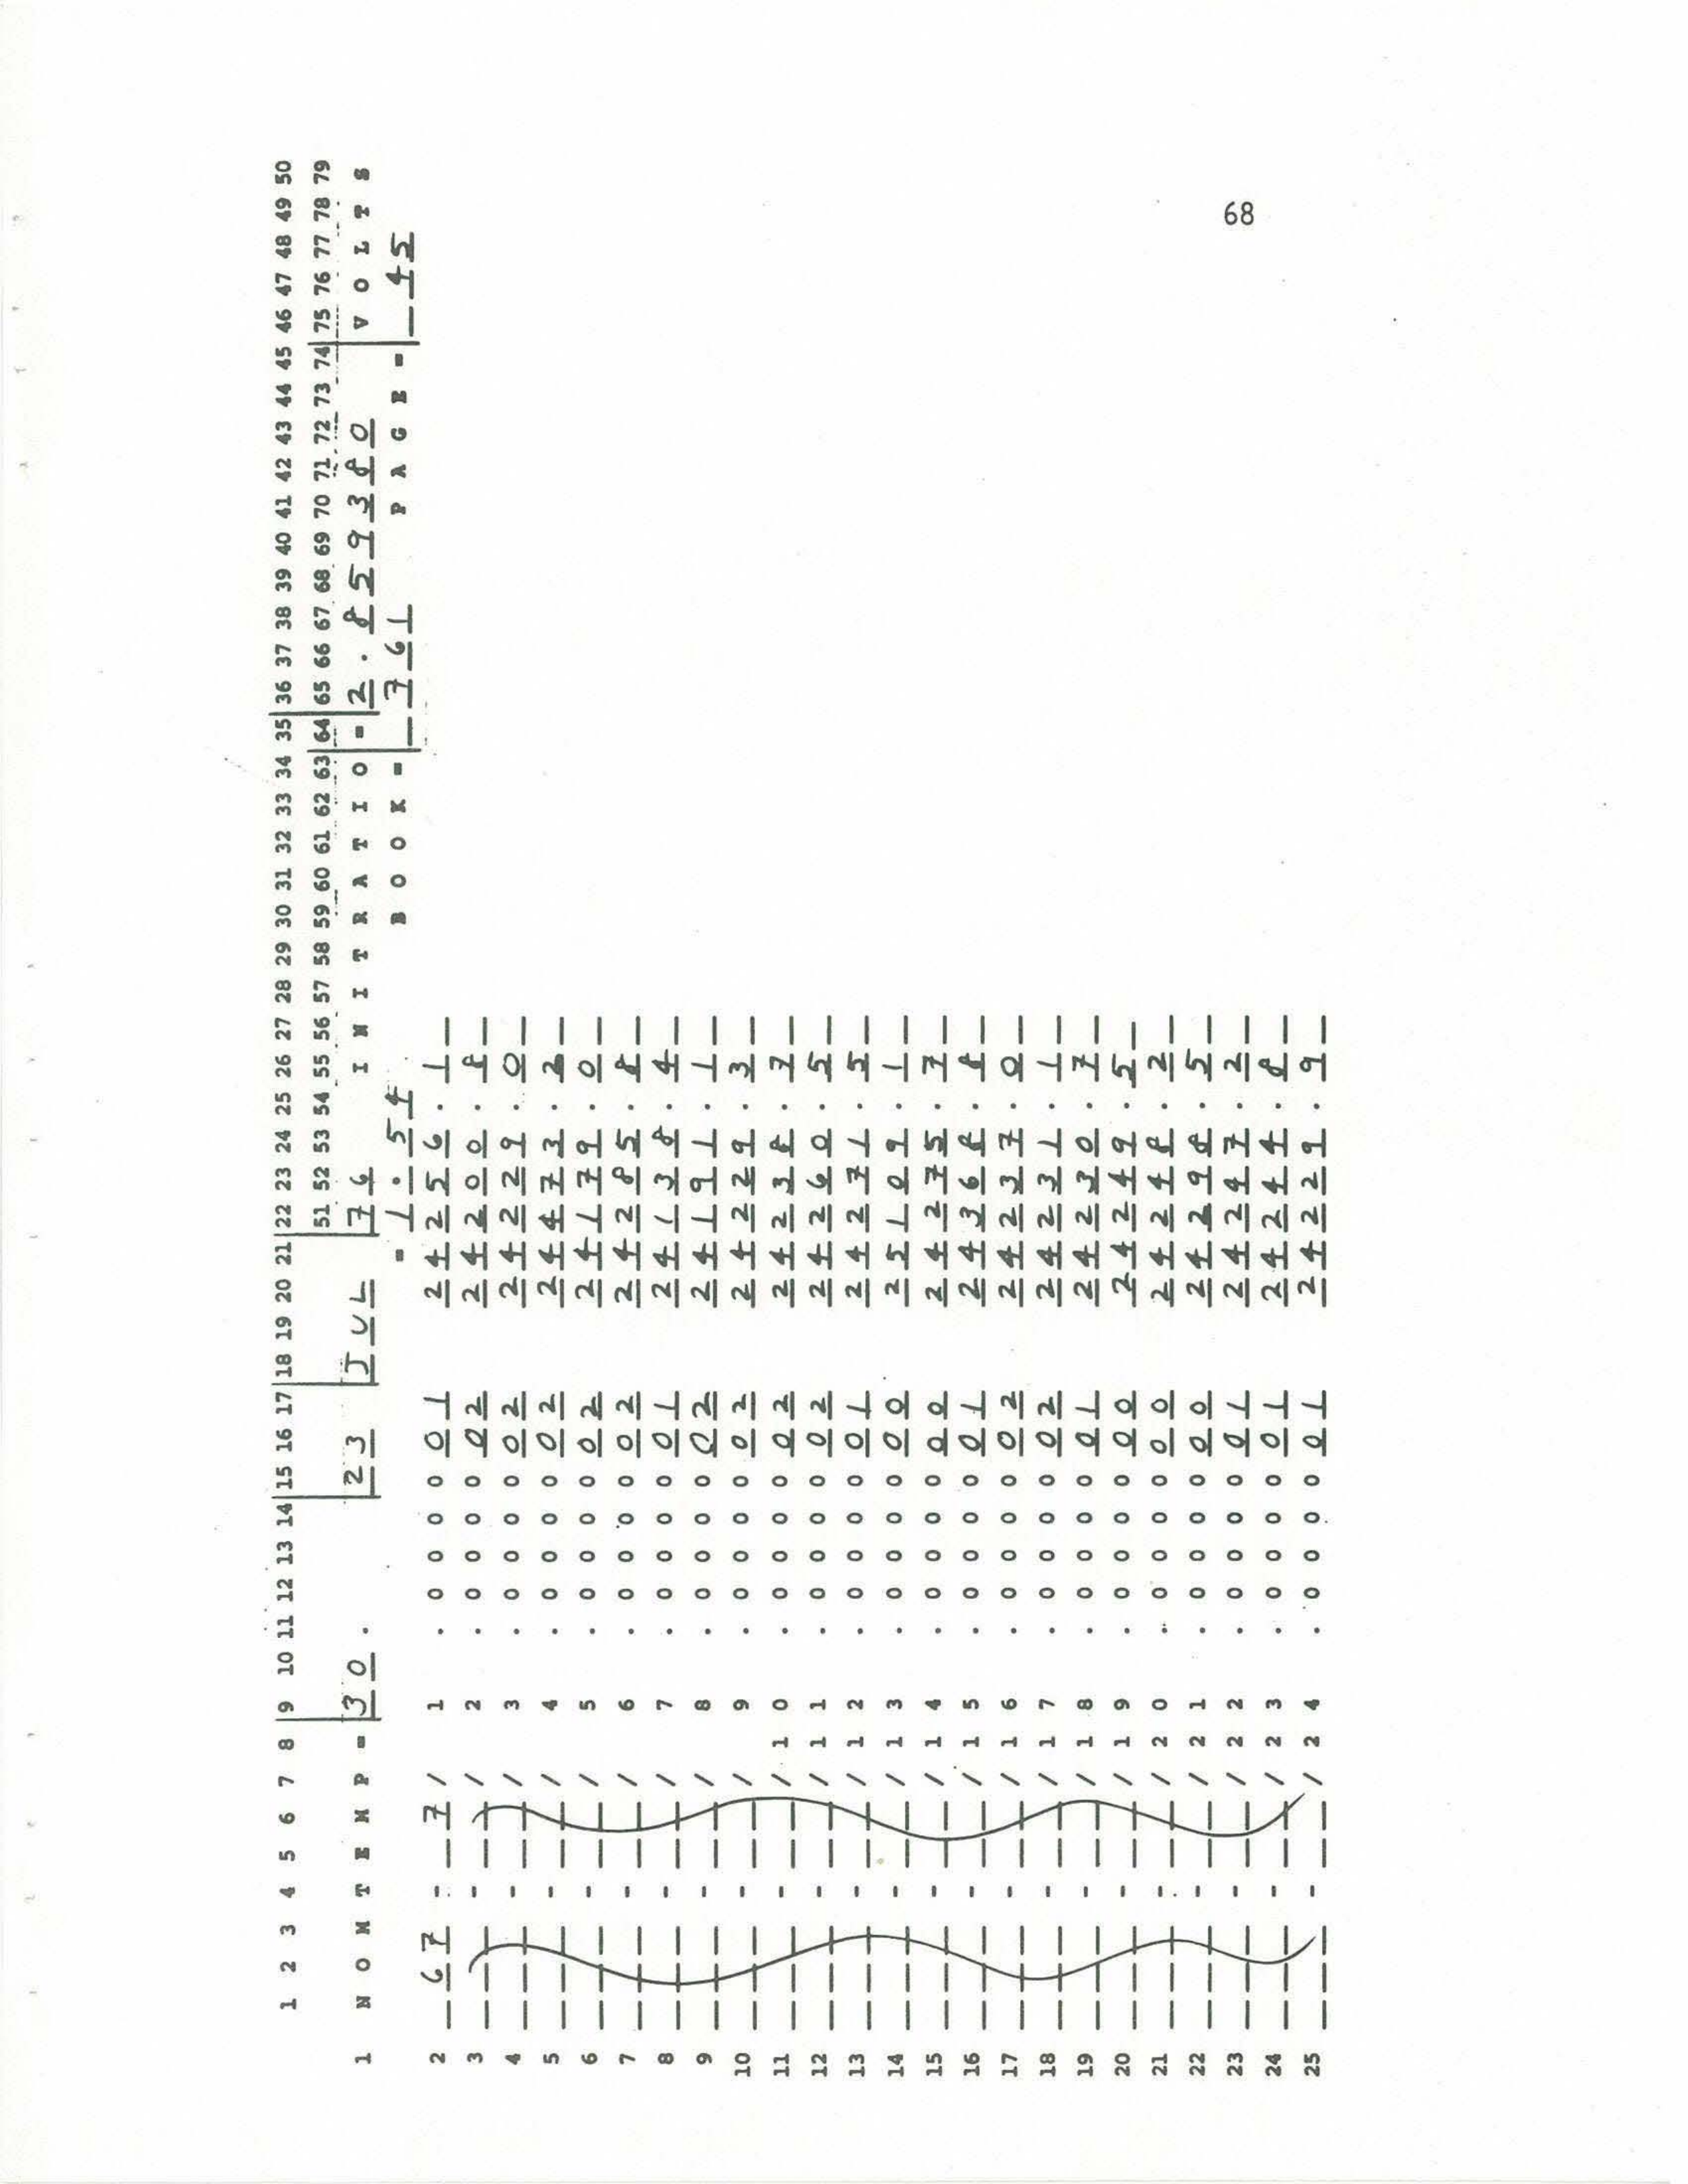 68
1 2 3 4 5 6 7 8 9 10 11 12 13 14 15 16 17 18 19 20 21 22 23 24 25 26 27 28 29 30 31 32 33 34 35 36 37 38 39 40 41 42 43 44 45 46 47 48 49 50
51 52 53 54 55 56 57 58 59 60 61 62 63 64 65 66 67 68 69 70 71 72 73 74 75 76 77 78 79
1 N O M T E M P = 3 0 . 2 3 J U L 7 6 I N I T R A T I O = 2 . 8 5 9 3 8 0 V O L T S
= 1 . 5 4 B O O K = 7 6 1 P A G E = 4 5
2 6 7 - 7 / 1 . 0 0 0 0 0 1 2 4 2 5 6 . 1
3 - / 2 . 0 0 0 0 0 2 2 4 2 0 0 . 8
4 - / 3 . 0 0 0 0 0 2 2 4 2 2 9 . 0
5 - / 4 . 0 0 0 0 0 2 2 4 4 7 3 . 2
6 - / 5 . 0 0 0 0 0 2 2 4 1 7 9 . 0
7 - / 6 . 0 0 0 0 0 2 2 4 2 8 5 . 8
8 - / 7 . 0 0 0 0 0 1 2 4 1 3 8 . 4
9 - / 8 . 0 0 0 0 0 2 2 4 1 9 1 . 1
10 - / 9 . 0 0 0 0 0 2 2 4 2 2 9 . 3
11 - / 1 0 . 0 0 0 0 0 2 2 4 2 3 8 . 7
12 - / 1 1 . 0 0 0 0 0 2 2 4 2 6 0 . 5
13 - / 1 2 . 0 0 0 0 0 1 2 4 2 7 1 . 5
14 - / 1 3 . 0 0 0 0 0 0 2 5 1 0 9 . 1
15 - / 1 4 . 0 0 0 0 0 0 2 4 2 7 5 . 7
16 - / 1 5 . 0 0 0 0 0 1 2 4 3 6 8 . 8
17 - / 1 6 . 0 0 0 0 0 2 2 4 2 3 7 . 0
18 - / 1 7 . 0 0 0 0 0 2 2 4 2 3 1 . 1
19 - / 1 8 . 0 0 0 0 0 1 2 4 2 3 0 . 7
20 - / 1 9 . 0 0 0 0 0 0 2 4 2 4 9 . 5
21 - / 2 0 . 0 0 0 0 0 0 2 4 2 4 8 . 2
22 - / 2 1 . 0 0 0 0 0 0 2 4 2 9 8 . 5
23 - / 2 2 . 0 0 0 0 0 1 2 4 2 4 7 . 2
24 - / 2 3 . 0 0 0 0 0 1 2 4 2 4 4 . 8
25 - / 2 4 . 0 0 0 0 0 1 2 4 2 2 9 . 9